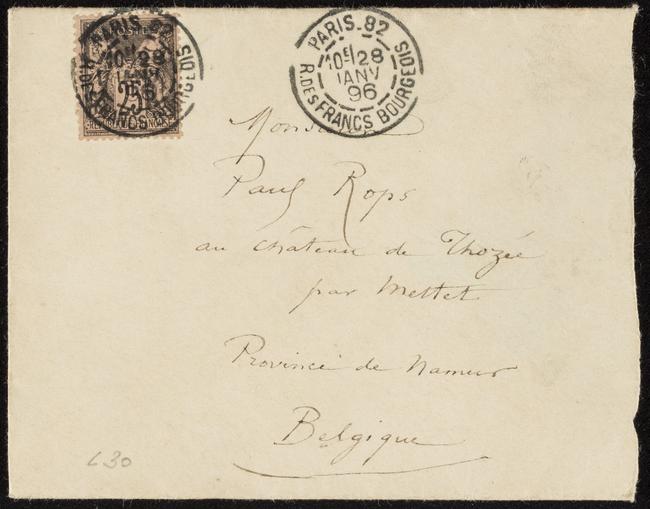 PARIS.82
10E/28
JANV
96
R.DES FRANCS BOURGEOIS
PARIS.82
28
JANV
25
Monsieur
Paul Rops
au château de Thozée
par Mettet
Province de Namur
Belgique
L30